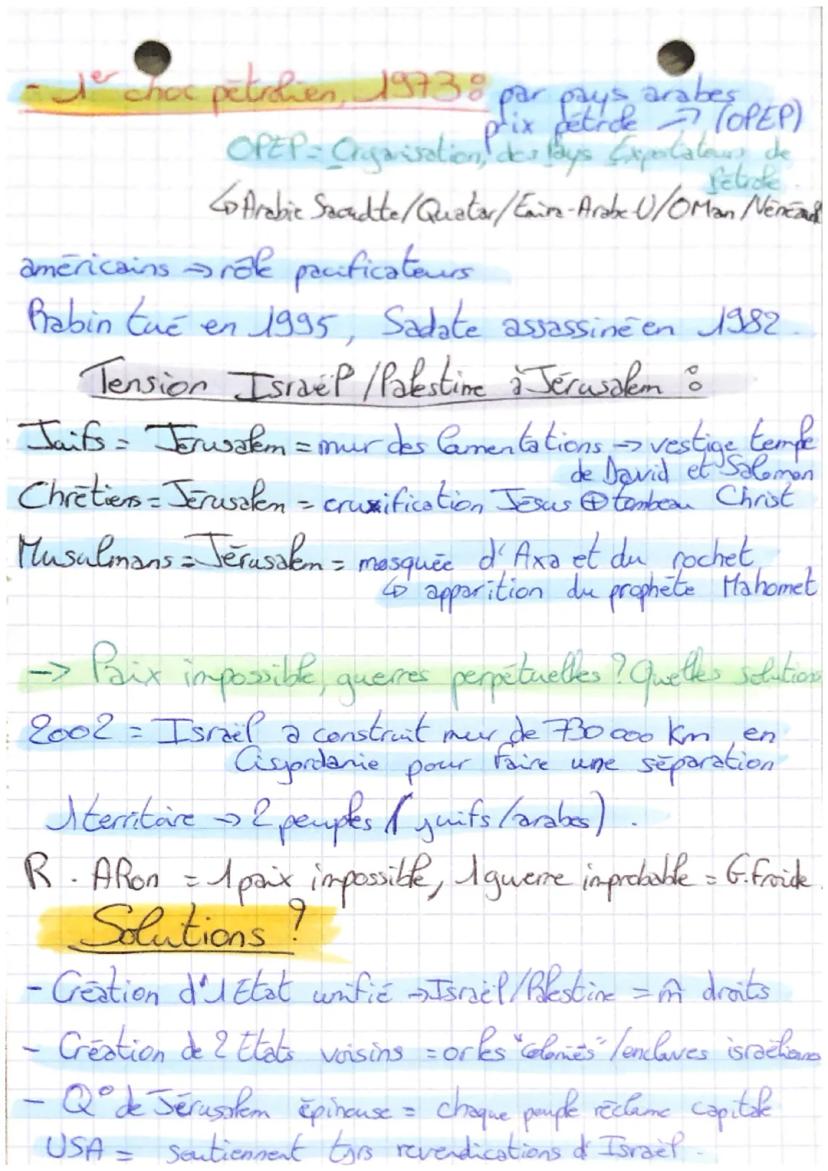 - 1er choc pétrolien, 1973 : par pays arabes
prix pétrole ↗ (OPEP)
OPEP = Organisation, des Pays Exportateurs de
Pétrole.
↳ Arabie Saoudite/Quatar/Emira-Arabe-U/OMan/Vénézuel
américains → rôle pacificateurs
Rabin tué en 1995, Sadate assassiné en 1982.
Tension Israël/Palestine à Jérusalem :
Juifs = Jérusalem = mur des lamentations → vestige temple
de David et Salomon
Chrétiens = Jérusalem = cruxification Jésus ⊕ tombeau Christ
Musulmans = Jérusalem = mosquée d'Axa et du rochet
↳ apparition du prophète Mahomet
-> Paix impossible, guerres perpétuelles ? Quelles solutions
2002 = Israël a construit mur de 730 000 km en
Cisjordanie pour faire une séparation
1 territoire → 2 peuples (juifs/arabes).
R. ARon = 1 paix impossible, 1 guerre improbable = G. Froide.
Solutions ?
- Création d'1 Etat unifié → Israël/Palestine = m̂ droits
- Création de 2 Etats voisins = or les "colonies"/enclaves israéliens
- Q° de Jérusalem épineuse = chaque peuple réclame capitale
USA = soutiennent tjrs revendications d'Israël.